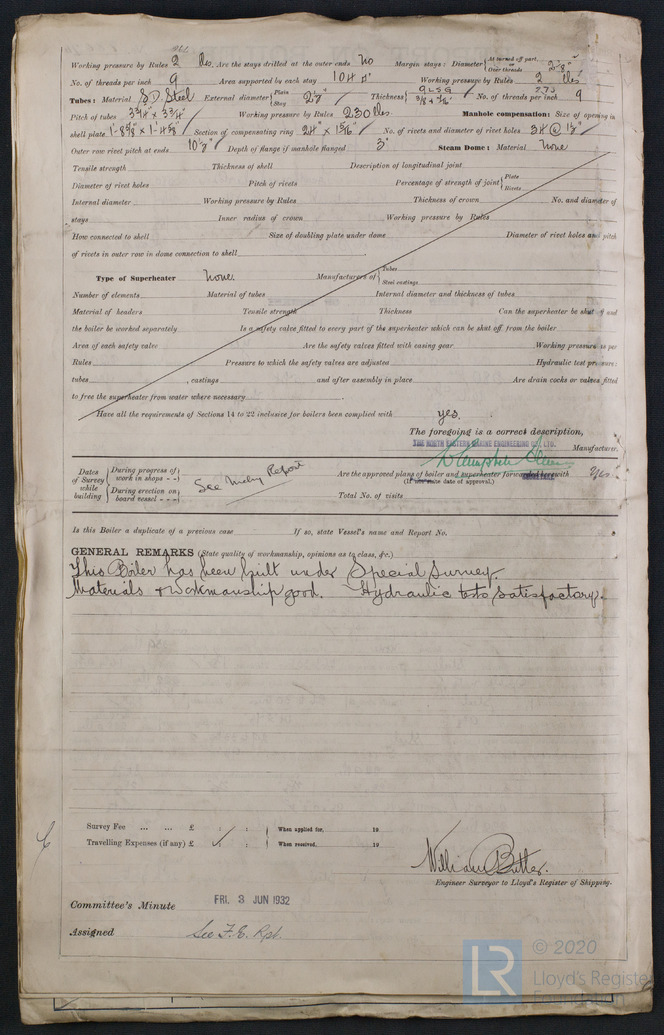 Working pressure by Rules 2 lbs. Are the stays drilled at the outer ends No Margin stays: Diameter {At turned off part, or Over threads 2 1/8"
No. of threads per inch 9 Area supported by each stay 104 □" Working pressure by Rules 2 lbs
Tubes: Material S.D. Steel External diameter {Plain Stay 2 1/2" Thickness {9 LSG 3/8 & 5/16" No. of threads per inch 9
Pitch of tubes 3 3/4" x 3 3/4" Working pressure by Rules 230 lbs Manhole compensation: Size of opening in
shell plate 1'-8 5/8" x 1'-4 5/8" Section of compensating ring 24" x 1 5/16" No. of rivets and diameter of rivet holes 34 @ 1 1/2"
Outer row rivet pitch at ends 10 1/2" Depth of flange if manhole flanged 3" Steam Dome: Material None
Tensile strength Thickness of shell Description of longitudinal joint
Diameter of rivet holes Pitch of rivets Percentage of strength of joint {Plate Rivets
Internal diameter Working pressure by Rules Thickness of crown No. and diameter of
stays Inner radius of crown Working pressure by Rules
How connected to shell Size of doubling plate under dome Diameter of rivet holes and pitch
of rivets in outer row in dome connection to shell
Type of Superheater None. Manufacturers of {Tubes Steel castings
Number of elements Material of tubes Internal diameter and thickness of tubes
Material of headers Tensile strength Thickness Can the superheater be shut off and
the boiler be worked separately Is a safety valve fitted to every part of the superheater which can be shut off from the boiler
Area of each safety valve Are the safety valves fitted with easing gear Working pressure as per
Rules Pressure to which the safety valves are adjusted Hydraulic test pressure:
tubes , castings and after assembly in place Are drain cocks or valves fitted
to free the superheater from water where necessary
Have all the requirements of Sections 14 to 22 inclusive for boilers been complied with yes.
The foregoing is a correct description,
THE NORTH EASTERN MARINE ENGINEERING CO., LTD. Manufacturer.
Dates of Survey while building {During progress of work in shops - - } {During erection on board vessel - - - } See Mchy Report
Are the approved plans of boiler and superheater forwarded herewith Yes
(If not state date of approval.)
Total No. of visits
Is this Boiler a duplicate of a previous case If so, state Vessel's name and Report No.
GENERAL REMARKS (State quality of workmanship, opinions as to class, &c.)
This Boiler has been built under Special Survey.
Materials & workmanship good. Hydraulic tests satisfactory.
Survey Fee ... ... £ : : When applied for, 19
Travelling Expenses (if any) £ : : When received, 19
William Butler.
Engineer Surveyor to Lloyd's Register of Shipping.
Committee's Minute FRI. 3 JUN 1932
Assigned See F.E. Rpt.
LR © 2020
Lloyd's Register
Foundation